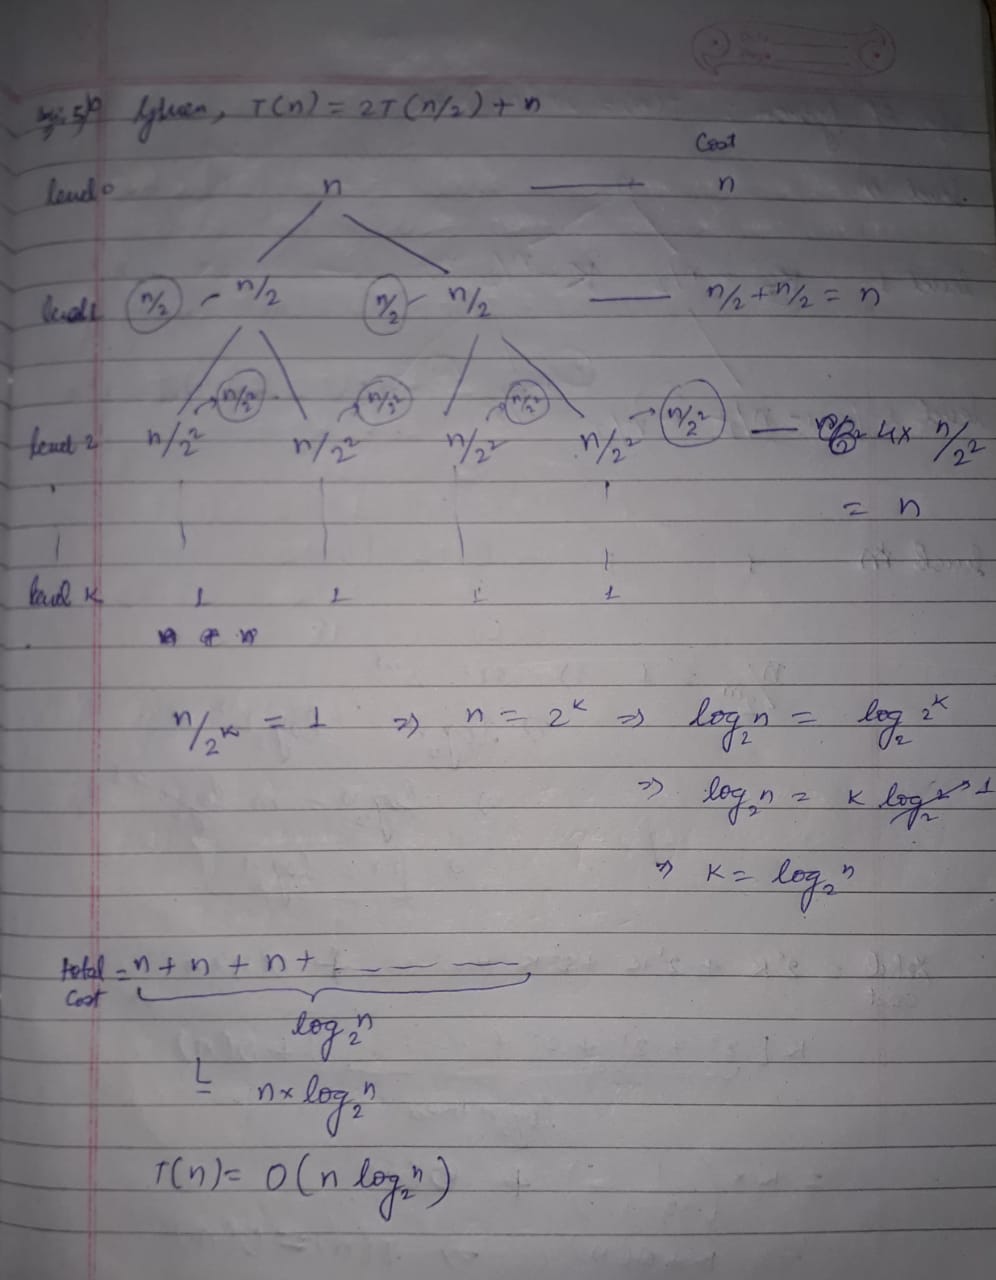 Given, T(n) = 2T(n/2) + n
Cost
level 0 n — n
level 1 n/2 - n/2 n/2 - n/2 — n/2 + n/2 = n
n/2² n/2² n/2² n/2²
level 2 n/2² n/2² n/2² n/2² — 4x n/2²
= n
level K 1 1 1 1
n/2ᴷ = 1 ⇒ n = 2ᴷ ⇒ log₂n = log₂2ᴷ
⇒ log₂n = K log₂2 → 1
⇒ K = log₂n
total cost = n + n + n + - — — —
log₂n
= n x log₂n
T(n) = O(n log₂n)